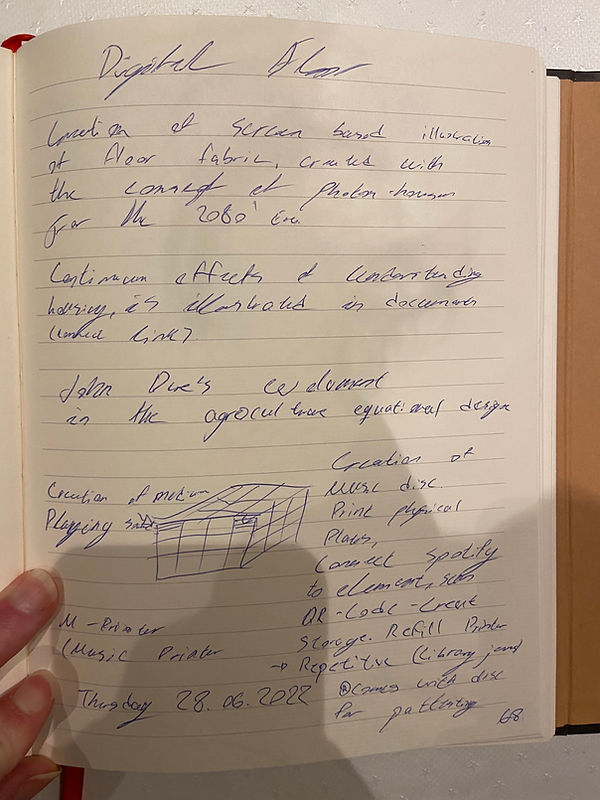 Digital Floor
Creation of screen based illustration
of floor fabric, created with
the concept of photon-
for the 2080' Era.
Continuum effects of Understanding
housing, is illustrated in documents
link?
John Dwe's
in the agroculture equational design
Creation of medium
Playping
Creation of
Music disc.
Print physical
Plates,
Connect spotify
to element, scan
QR-Code-Creat
Storage. Refill Printer
→ Repetitive (library
comes with disc
for
M-Printer
(Music Printer
Thursday 28.06.2022
68